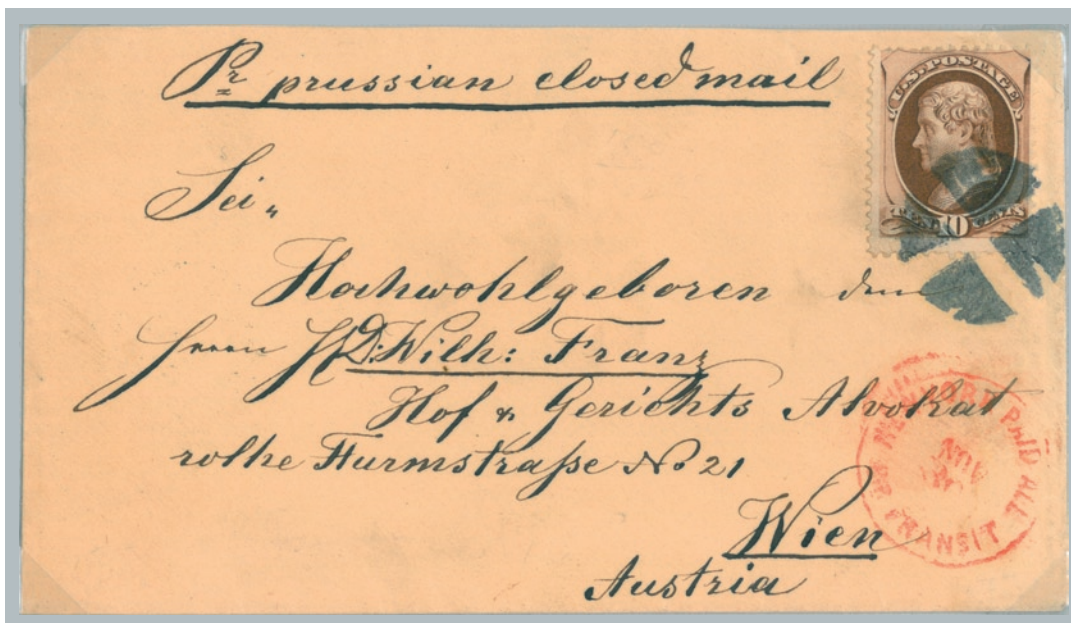 Pr prussian closed mail
U.S. POSTAGE
TEN 10 CENTS
Sei„
Hochwohlgeboren dem
Herrn H D: Wilh: Franz
Hof & Gerichts Advokat
rothe Thurmstraße No 21
Wien
Austria
NEW YORK PAID ALL
NOV
BR TRANSIT